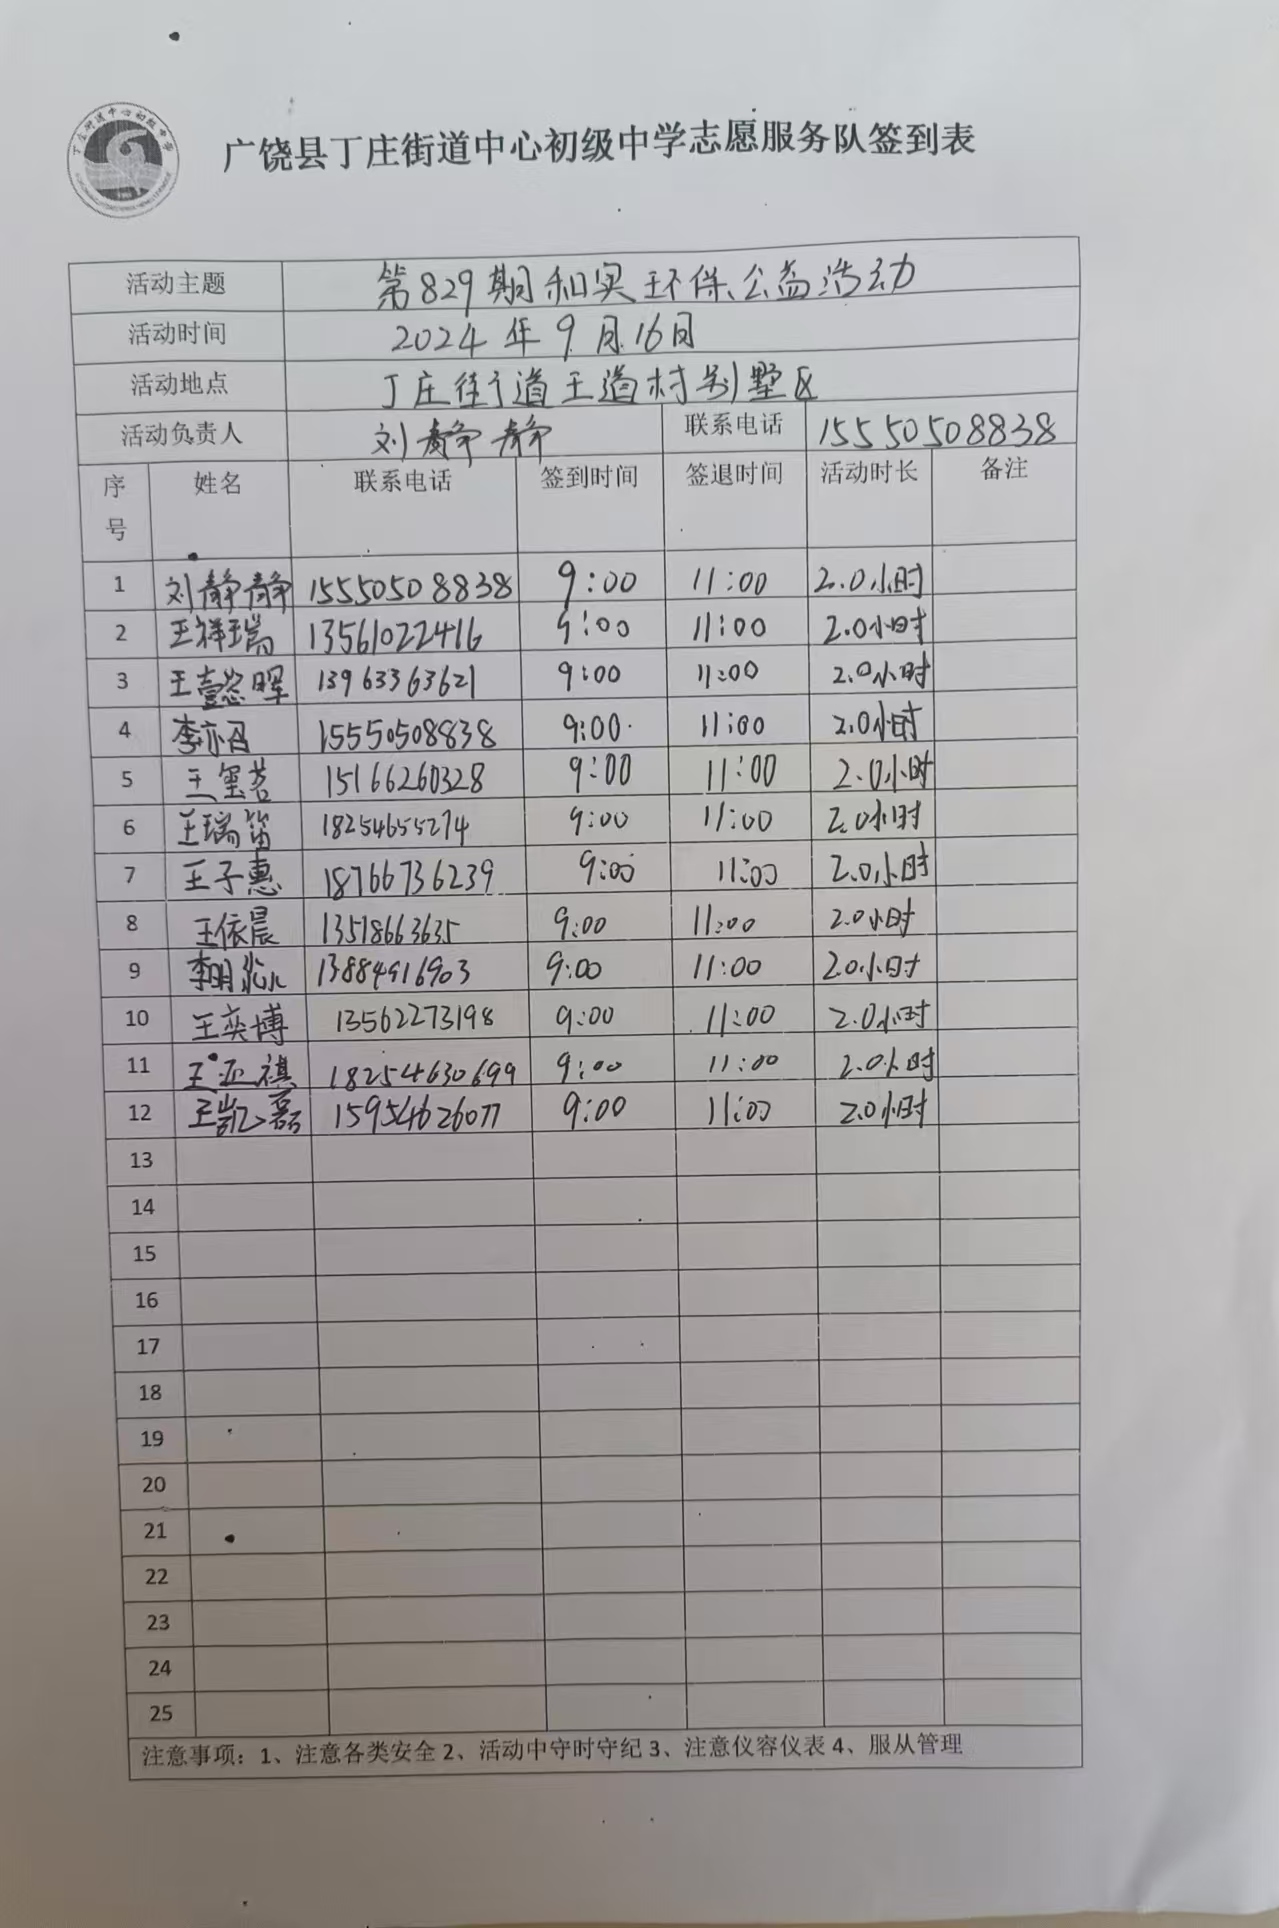 广饶县丁庄街道中心初级中学志愿服务队签到表
活动主题 第829期和实环保公益活动
活动时间 2024年9月16日
活动地点 丁庄街道王道村别墅区
活动负责人 刘静静 联系电话 15550508838
序号 姓名 联系电话 签到时间 签退时间 活动时长 备注
1 刘静静 15550508838 9:00 11:00 2.0小时
2 王祥瑞 13561022416 9:00 11:00 2.0小时
3 王懿晖 13963363621 9:00 11:00 2.0小时
4 李亦召 15550508838 9:00 11:00 2.0小时
5 王玺茗 15166260328 9:00 11:00 2.0小时
6 王瑞笛 18254655274 9:00 11:00 2.0小时
7 王子惠 18766736239 9:00 11:00 2.0小时
8 王依晨 13518663635 9:00 11:00 2.0小时
9 李明 13884916903 9:00 11:00 2.0小时
10 王奕博 13562273198 9:00 11:00 2.0小时
11 王亚祺 18254630699 9:00 11:00 2.0小时
12 王凯磊 15954626077 9:00 11:00 2.0小时
13
14
15
16
17
18
19
20
21
22
23
24
25
注意事项：1、注意各类安全 2、活动中守时守纪 3、注意仪容仪表 4、服从管理